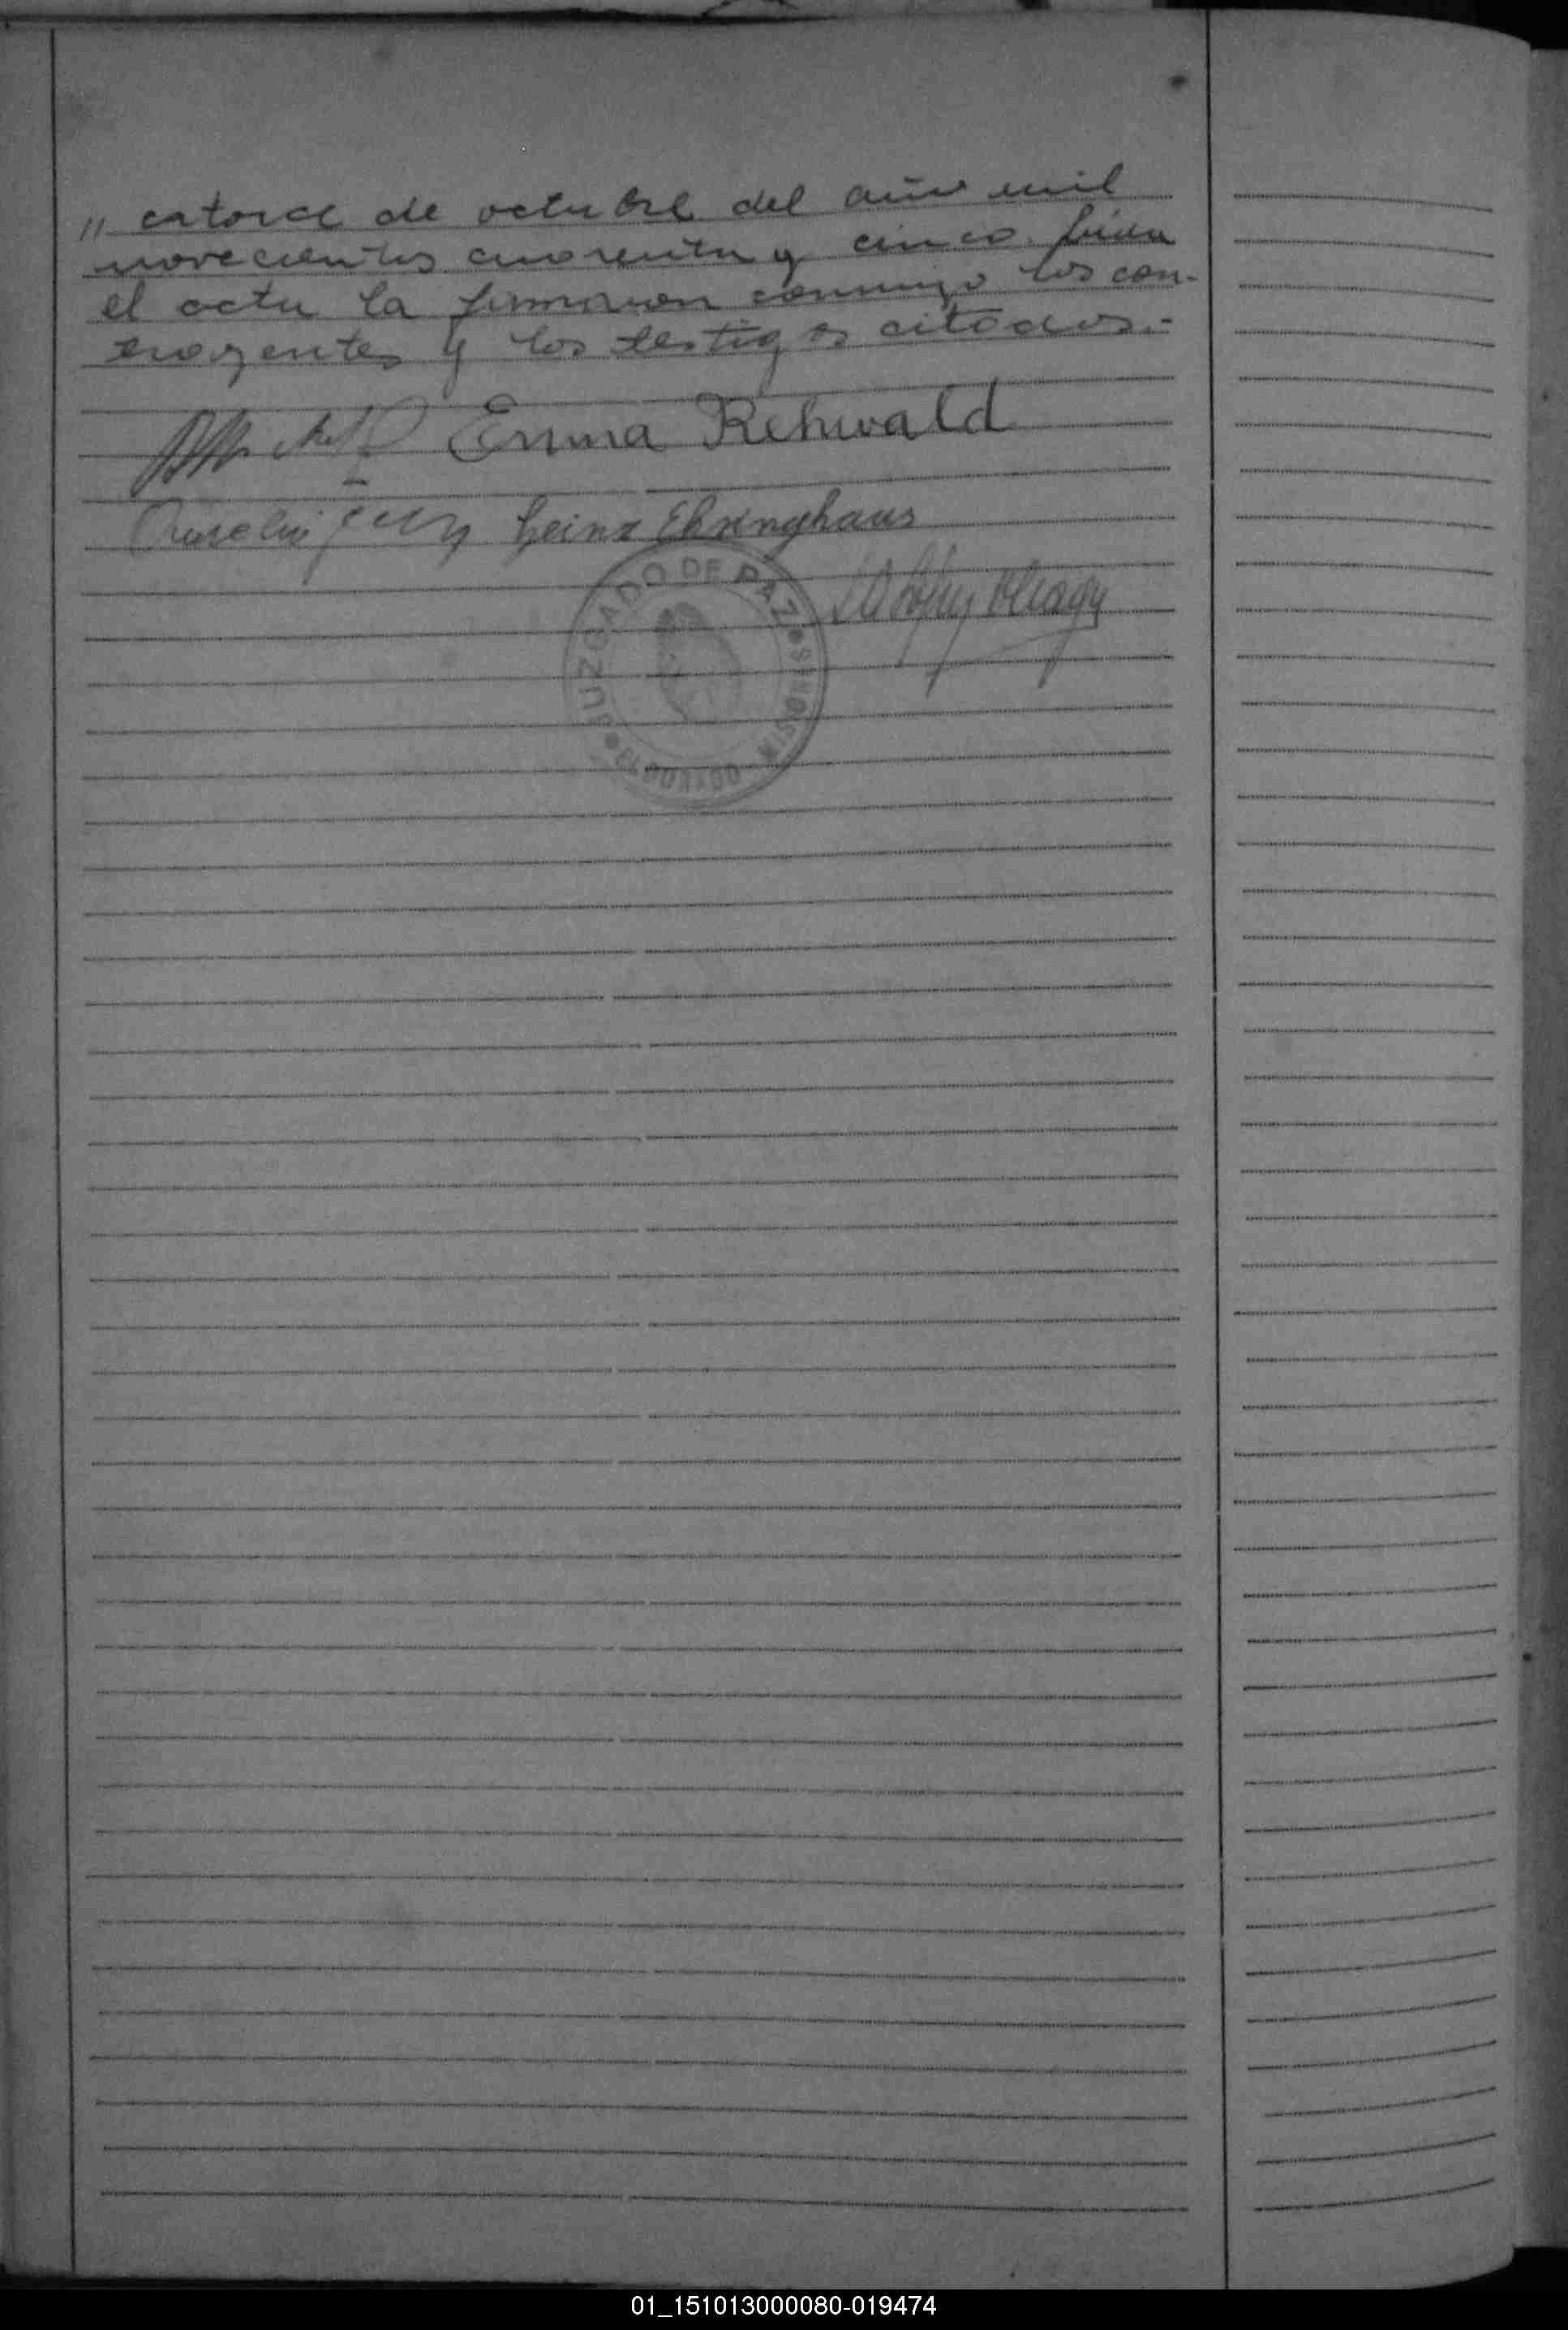 " catorce de octubre del año mil
novecientos cuarenta y cinco. Leida
el acta la firmaron conmigo los con-
trayentes y los testigos citados.-
Emma Rehwald
Heinz Ehringhaus
JUZGADO DE PAZ
ELDORADO - MISIONES
01_151013000080-019474